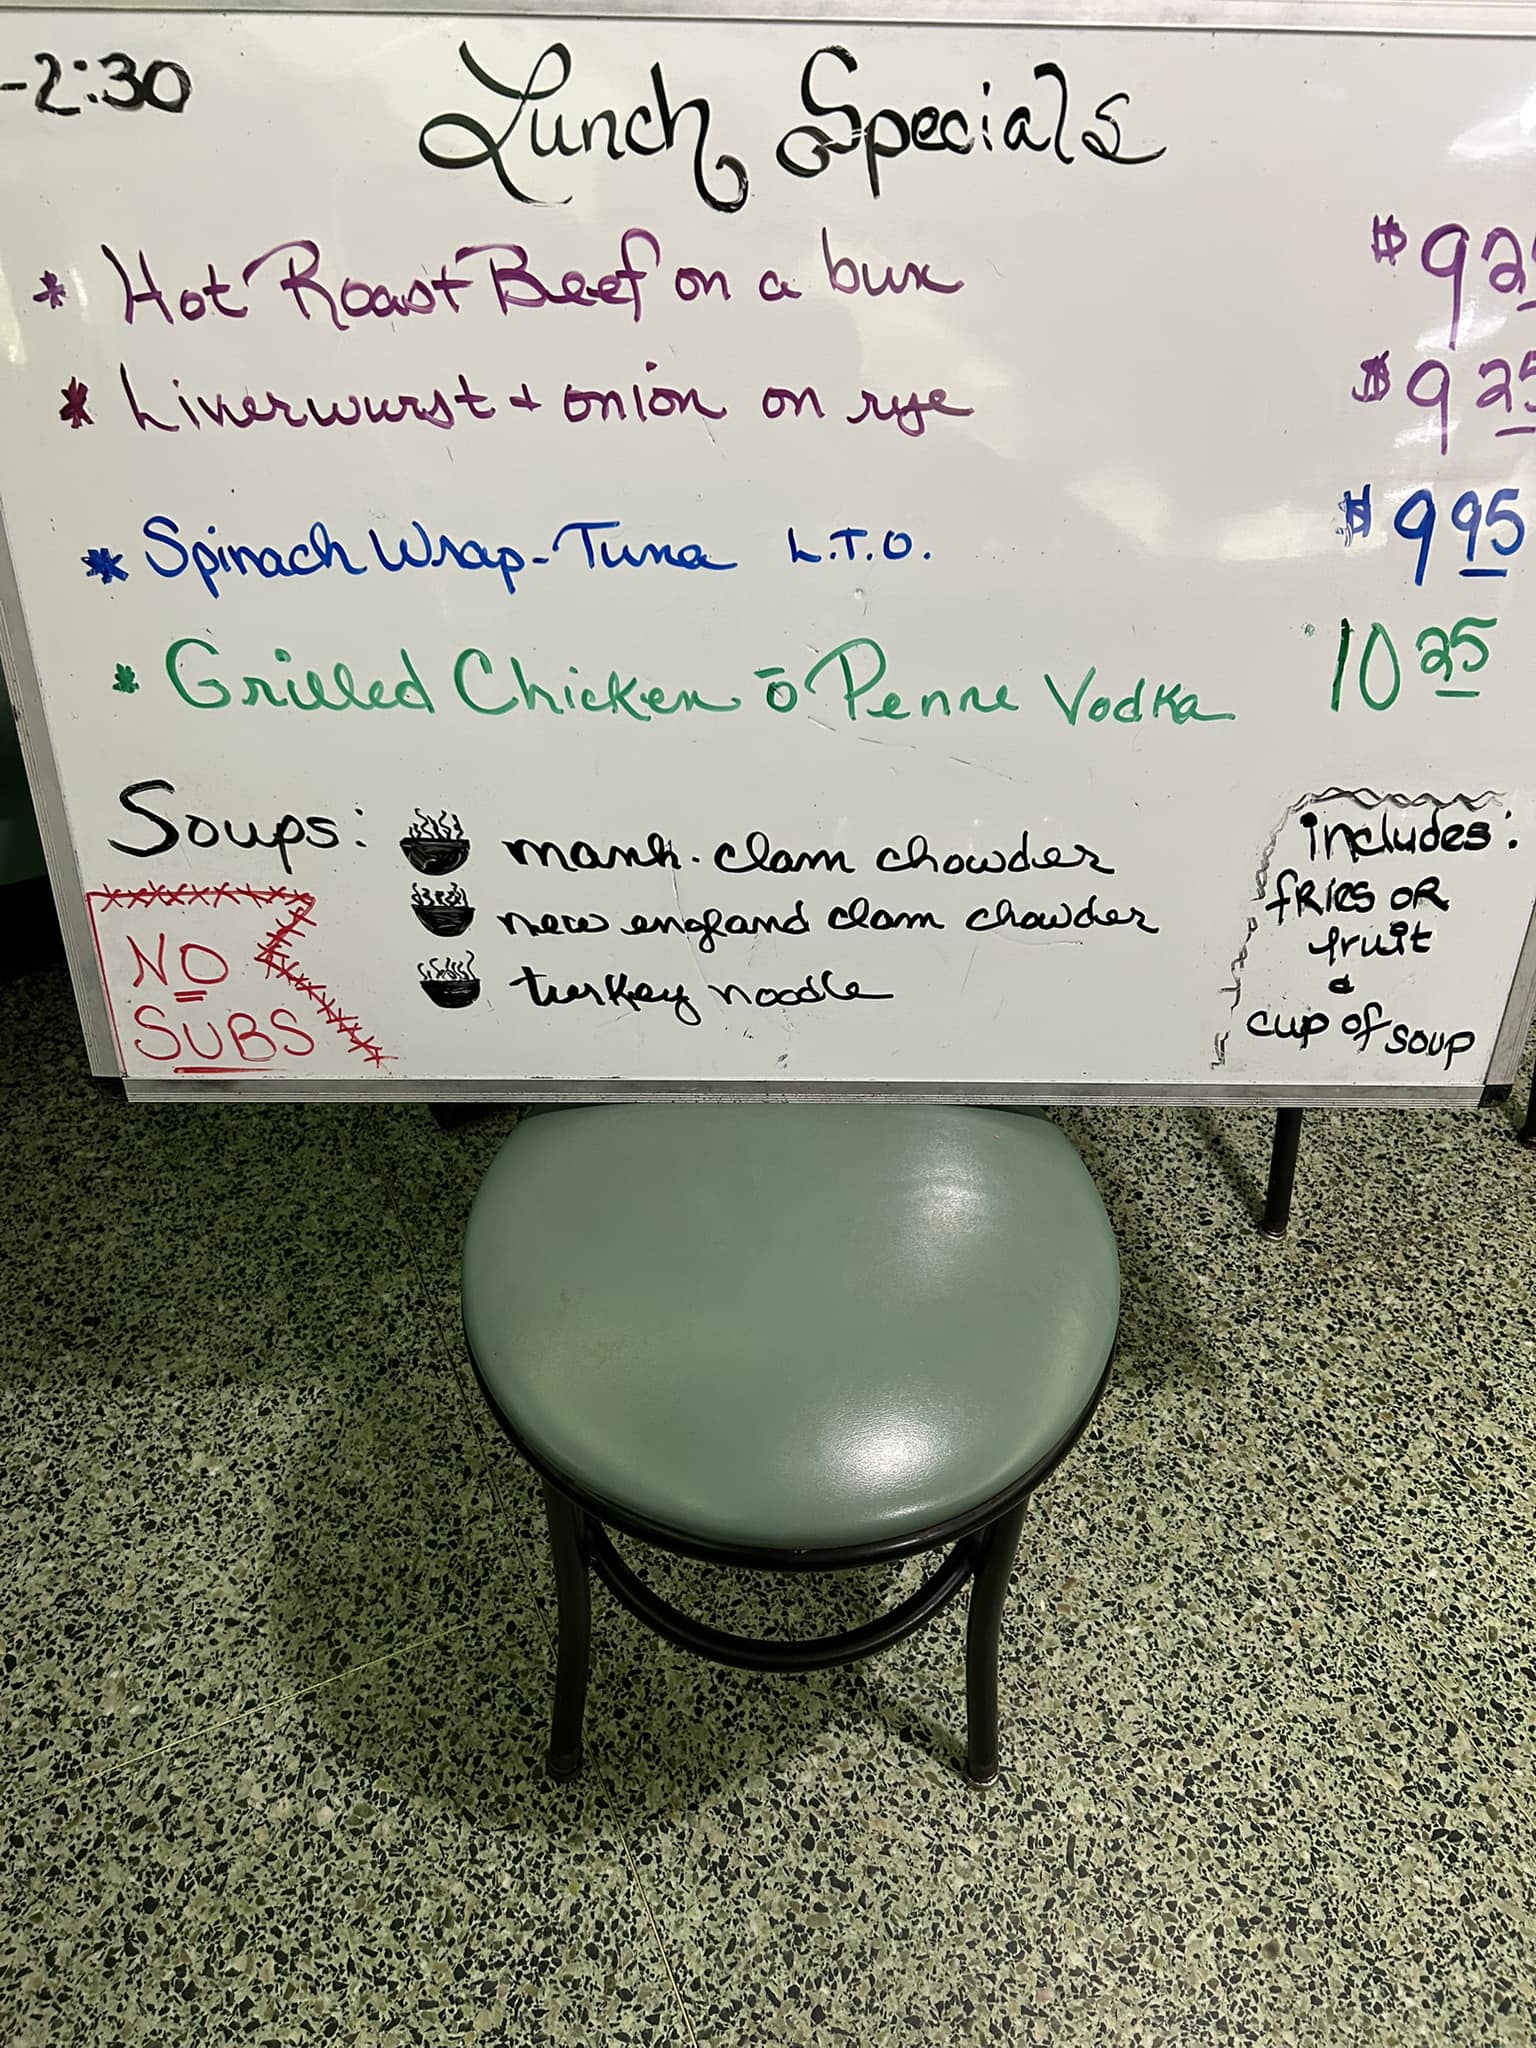 -2:30
Lunch Specials
* Hot Roast Beef on a bun $9 25
* Liverwurst + onion on rye $9 25
* Spinach Wrap-Tuna L.T.O. $9 95
* Grilled Chicken ō Penne Vodka 10 25
Soups: manh. clam chowder
new england clam chowder
turkey noodle
NO
SUBS
includes:
fries or
fruit
&
cup of soup